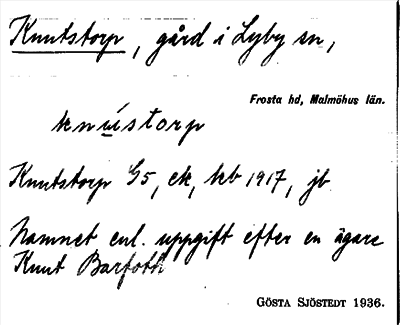 Knutstorp, gård i Lyby sn,
Frosta hd, Malmöhus län.
knústorp
Knutstorp G5, ek, kb 1917, jb
Namnet enl. uppgift efter en ägare
Knut Barfoth
GÖSTA SJÖSTEDT 1936.